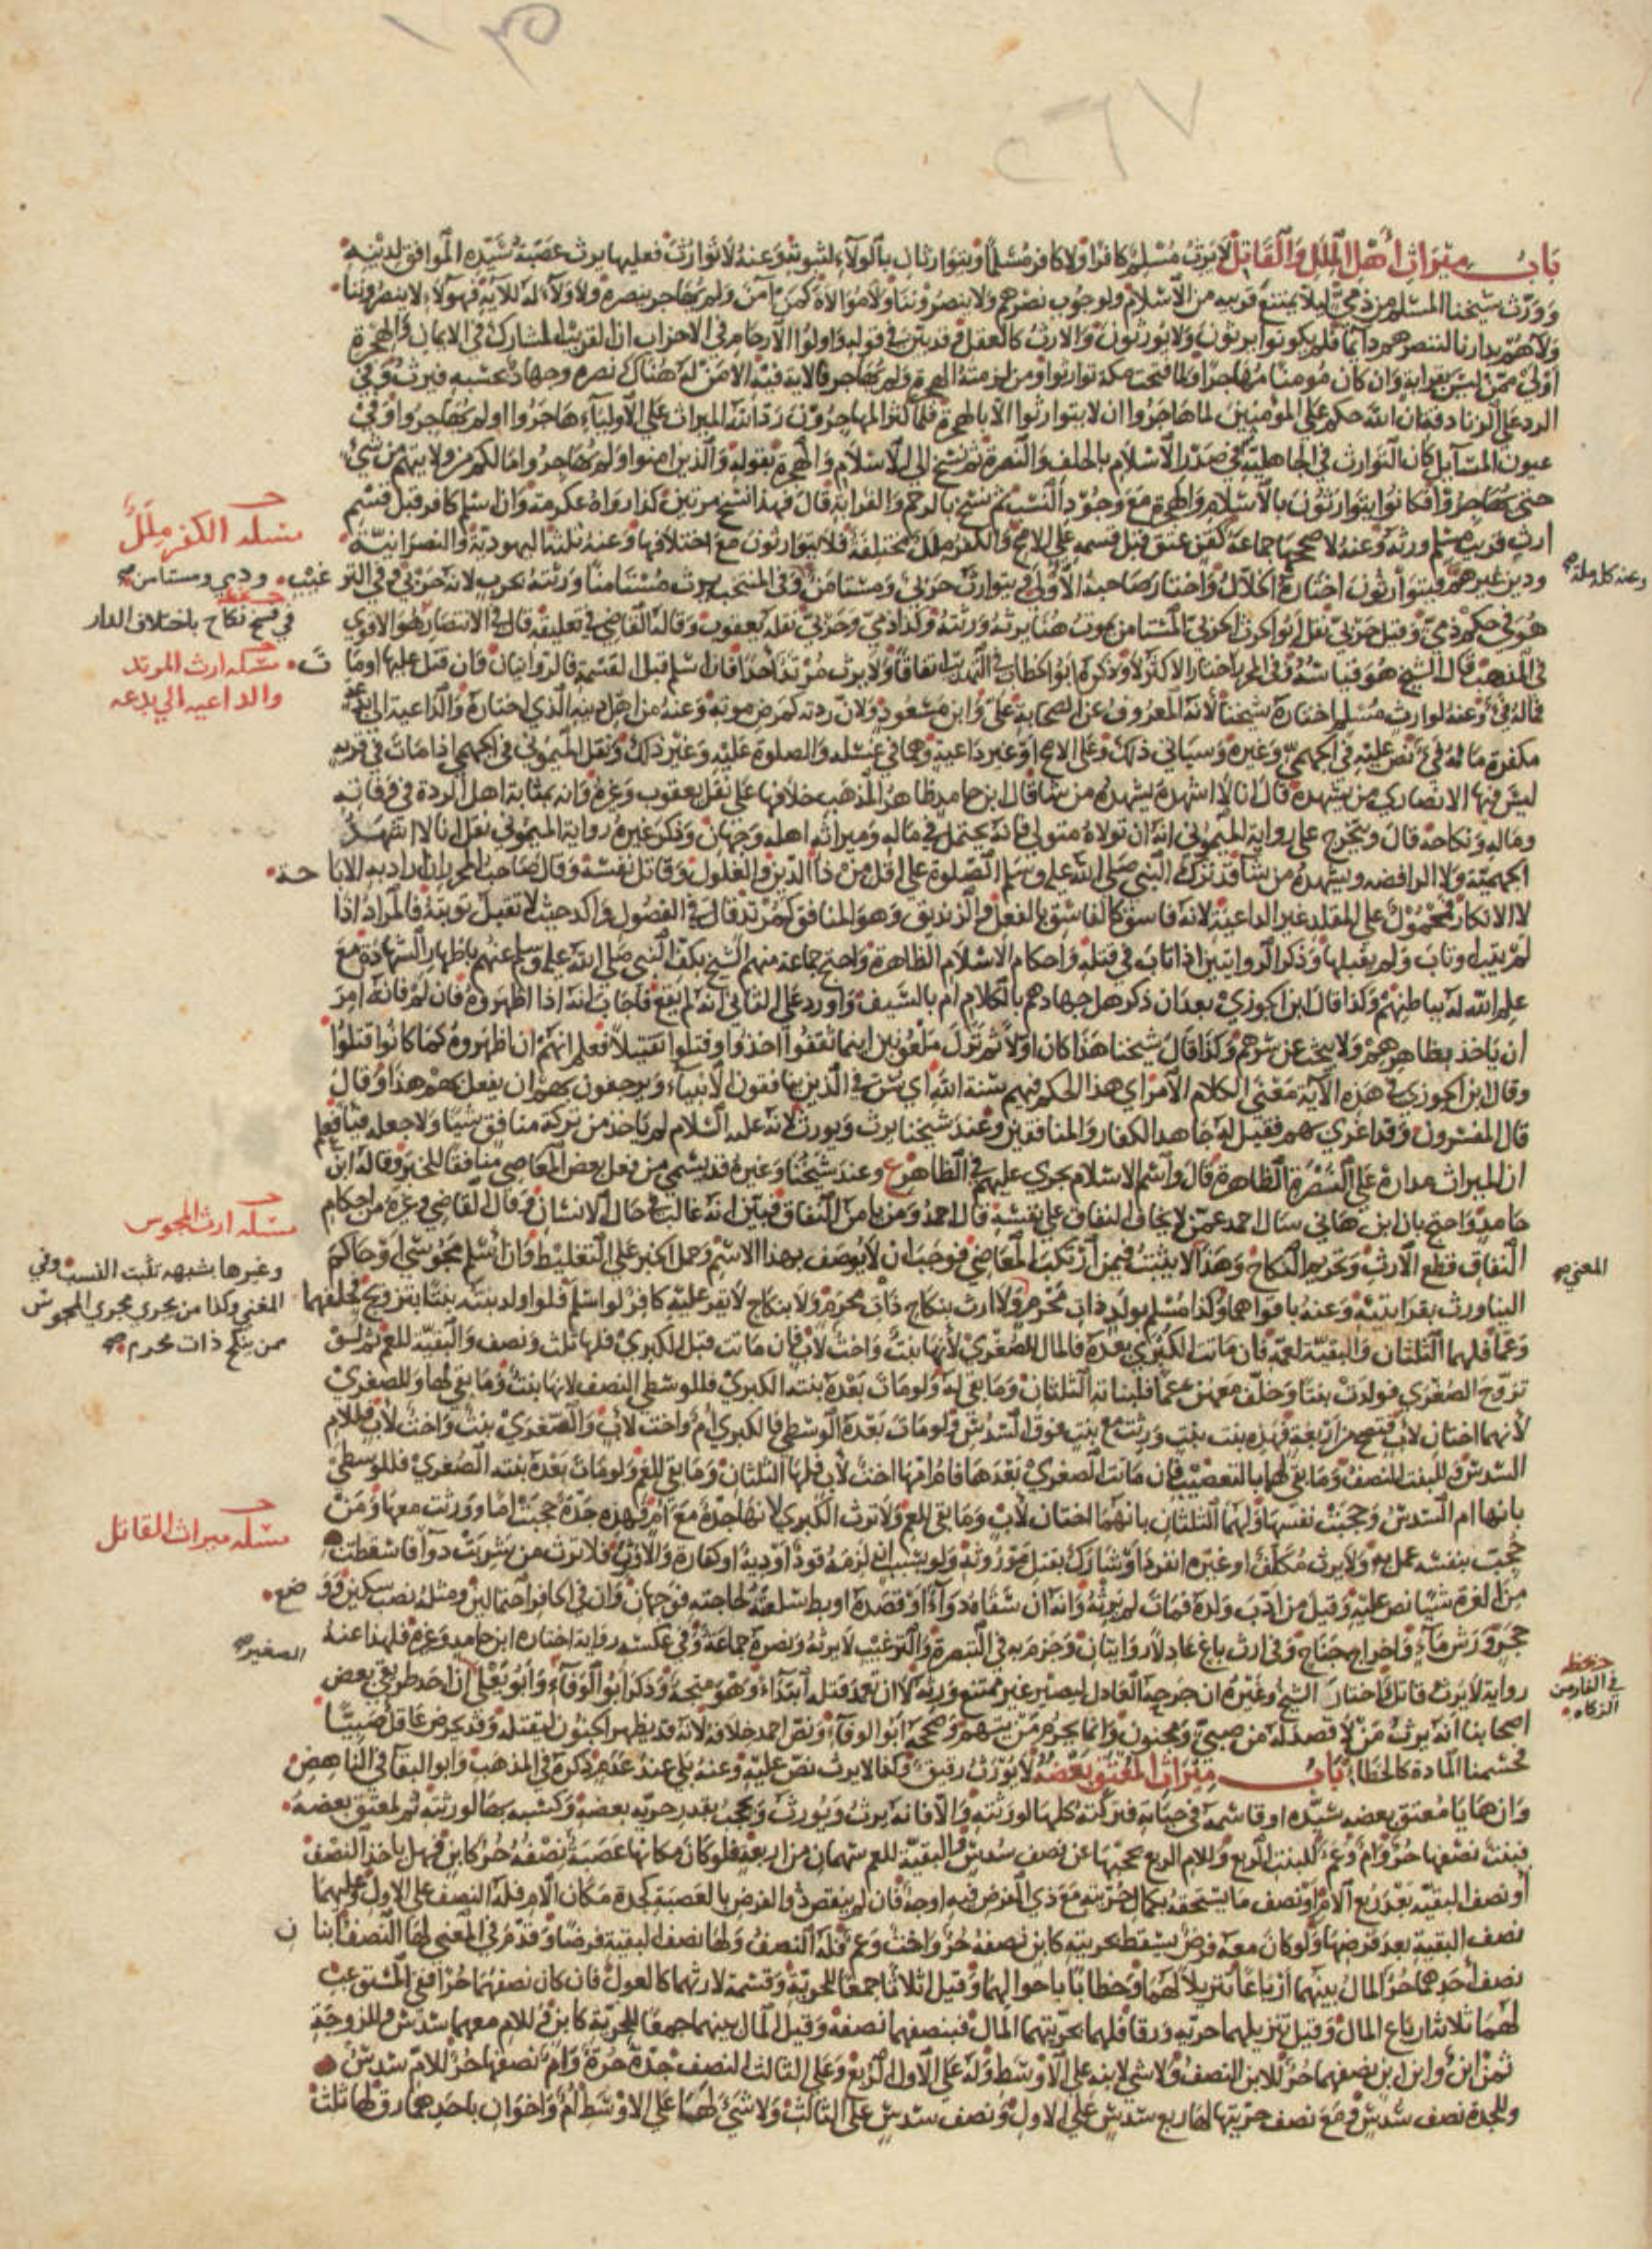 باب ميراث أهل الملل والقاتل لا يرث مسلم كافرا ولا كافر مسلما ويتوارثان بالولاء لثبوته وعنه لا توارث فعليها يرث عصبة سيده الموافق لدينه
وورث شيخنا المسلم من ذمي لئلا يمتنع قريبه من الاسلام ولوجوب نصرهم ولا ينصروننا ولا موالاة كمن آمن ولم يهاجر ينصره ولا ولاء له للآية فهؤلاء لا ينصروننا
ولا هم بدارنا لننصرهم دائما فلم يكونوا يرثون ولا يورثون والارث كالعقل وقد بين في قوله واولوا الارحام في الاحزاب ان القريب المشارك في الايمان والهجرة
أولى ممن ليس بقرابة وان كان مؤمنا مهاجرا ولما فتحت مكة توارثوا ومن لزمته الهجرة ولم يهاجر فالاية فيه الا من له هناك نصره وجهاد بحسبه فيرث وفي
الرد على الزنادقة ان الله حكم على المؤمنين لما هاجروا ان لا يتوارثوا الا بالهجرة فلما كثر المهاجرون رد الله الميراث على الاولياء هاجروا او لم يهاجروا وفي
عيون المسائل كان التوارث في الجاهلية وفي صدر الاسلام بالحلف والنصرة ثم نسخ الى الاسلام والهجرة بقوله والذين امنوا ولم يهاجروا مالكم من ولايتهم من شيء
حتى يهاجروا فكانوا يتوارثون بالاسلام والهجرة مع وجود النسب ثم نسخ بالرحم والقرابة قال فهذا نسخ مرتين كذا رواه عكرمة وان اسلم كافر قبل قسم
مسئلة الكفر ملل
ارث قريبه مسلم ورثه وعنه لا صححها جماعة كمن عتق قبل قسمه على الاصح والكفر ملل مختلفة فلا يتوارثون مع اختلافها وعنه ثلثة اليهودية والنصرانية
وعنه كله ملة صح
ودين غيرهم فيتوارثون اختاره الخلال واختار صاحبه الاولى يتوارث حربي ومستأمن وفي المنتخب يرث مستأمنا ورثته بحرب لانه حربي وفي التر غيب
وذمي ومستامن صح
هو في حكم ذمي وقيل حربي نقل ابو الحرث الحربي المستامن يموت هنا يرثه ورثته وكذا ذمي وحربي نقله يعقوب وقاله القاضي في تعليقه قال في الانتصار هو الاقوى
في فسخ نكاح باختلاف الدار
في المذهب قال الشيخ هو قياسه وفي المحرر اختار الاكثر لا وذكره ابو الخطاب في التهذيب اتفاقا ولا يرث مرتد احدا فان اسلم قبل القسمة فالروايتان فان قتل عليها او ما ت
مسئلة ارث المرتد
والداعيه الي بدعه
فماله فيء وعنه لوارث مسلم اختاره شيخنا لأنه المعروف عن الصحابة علي وابن مسعود ولان ردته كمرض موته وعنه من اهل دينه الذي اختاره والداعية الى بدعة
مكفرة ماله فيء نص عليه في الجهمي وغيره وسياتي ذلك وعلى الاصح او غير داعية وهما في غسله والصلوة عليه وغير ذلك ونقل الميموني في الجهمي اذا مات في قرية
ليس فيها الا نصارى من يشهده قال انا لا اشهده يشهده من شاء قال ابن حامد ظاهر المذهب خلافها على نقل يعقوب وغيره وانه بمثابة اهل الردة في وفاته
وماله ونكاحه قال ويتخرج على رواية الميموني انه ان تولاه متولي فانه يحتمل في ماله وميراثه اهله وجهان وذكر غيره رواية الميموني نقل انا لا اشهد
الجهمية ولا الرافضه ويشهده من شاء قد ترك النبي صلى الله عليه وسلم الصلوة على اقل من ذا الدين والغلول وقاتل نفسه وقال صاحب المحرر اراد به الابا حة
لا الانكار محمول على المقلد غير الداعية لانه فاسق كالفاسق بالفعل والزنديق وهو المنافق كمرتد قال في الفصول واكد حيث لا تقبل توبته فالمراد اذا
لم يتب او تاب ولم يقبلها وذكر الروايتين اذا تاب في قتله واحكام الاسلام الظاهرة واحتج جماعة منهم الشيخ بكف النبي صلى الله عليه وسلم عنهم باظهار الشهادة مع
علم الله له بباطنهم وكذا قال ابن الجوزي بعد ان ذكر هل جهادهم بالكلام ام بالسيف واورد على الثاني انه لم يقع فأجاب انه اذا اظهروه فان لم فانه امر
ان ياخذ بظاهرهم ولا يبحث عن سرهم وكذا قال شيخنا هذا كان اولا ثم نزل ملعونين اينما ثقفوا اخذوا وقتلوا تقتيلا فعلم انهم ان اظهروه كما كانوا قتلوا
وقال ابن الجوزي في هذه الآية معنى الكلام الامر اي هذا الحكم فيهم سنة الله اي سن في الذين ينافقون الانبياء ويرجفون بهم ان يفعل بهم هذا وقال
قال المفسرون وقد اغري بهم فقيل له جاهد الكفار والمنافقين وعند شيخنا يرث ويورث لانه عليه السلام لم ياخذ من تركة منافق شيئا ولا جعله فيئا فعلم
ان الميراث مداره على النصرة الظاهرة قال واسم الاسلام يجري عليهم في الظاهر ع وعند شيخنا وغيره قد يسمى من فعل بعض المعاصي منافقا للخبر وقاله ابن
حامد واحتج بان ابن هاني سال احمد عمن لا يخاف النفاق على نفسه قال احمد ومن يامن النفاق فبين انه غالب في حال الانسان وقال القاضي وغيره من احكام
مسئلة ارث المجوس
النفاق قطع الارث وتحريم النكاح وهذا لا يثبت فيمن ارتكب المعاصي فوجب ان لا يوصف بهذا الاسم وحمل الخبر على التغليظ وان اسلم مجوسي او حاكم
المغني صح
وغيرها بشبهه تثبت النسب وفي
المغني وكذا من يجري مجرى المجوس
ممن ينكح ذات محرم صح
الينا ورث بقرابتيه وعنه باقواهما وكذا مسلم يولد ذات محرم ولا ارث بنكاح ذات محرم ولا بنكاح لا يقر عليه كافر لو اسلم فلو اولد بنته بنتا بتزويج فخلفهما
وعما فلهما الثلثان والبقية لعمه فان ماتت الكبرى بعده فالمال للصغرى لأنها بنت واخت لأب فان ماتت قبل الكبرى فلها ثلث ونصف والبقية للعم ثم لو
تزوج الصغرى فولدت بنتا وخلف معهن عما فلبناته الثلثان وما بقي له ولو مات بعده بنته الكبرى فللوسطى النصف لانها بنت وما بقي لها وللصغرى
لأنهما اختان لأب فتصح من اربعة فهذه بنت بنت ورثت مع بنت فوق السدس ولو مات بعده الوسطى فالكبرى أم واخت لأب والصغرى بنت واخت لأب فللام
السدس وللبنت النصف وما بقي لهما بالتعصيب فان ماتت الصغرى بعدها فام امها اخت لأب فلها الثلثان وما بقي للعم ولو مات بعده بنته الصغرى فللوسطى
بانها ام السدس وحجبت نفسها ولهما الثلثان بانهما اختان لأب وما بقي للعم ولا ترث الكبرى لانها جدة مع ام فهذه جدة حجبت اما وورثت معها ومن
مسئلة ميراث القاتل
حجب بنفسه عمل به ولا يرث مكلف او غيره انفرد او شارك بقتل موروثه ولو بسبب ان لزمه قود او دية او كفارة والارث فلا ترث من شربت دواء فاسقطت
من الغرة شيئا نص عليه وقيل من ادب ولده فمات لم يرثه وانه ان سقاه دواء او فصده او بط سلعته لحاجته فوجهان وان في الحافر احتمالين ومثله نصب سكين وو ضع
حجر ورش ماء واخراج جناح وفي ارث باغ عادلا روايتان وجزم به في التبصرة والترغيب لا يرثه ونصره جماعة وفي عكسه رواية اختاره ابن حامد وغيره فلهذا عنه
الصغير صح
رواية لا يرث قاتل واختار الشيخ وغيره ان جرحه العادل ليصير غير ممتنع ورثه لا ان تعمد قتله ابتداء وهو متجه وذكر ابو الوفاء وابو يعلى ان احد طريقي بعض
في الفارس
الزكاه
اصحابنا انه يرث من لا قصد له من صبي ومجنون وانما يحرم من يتهم وصححه ابو الوفاء ونص احمد خلافه لانه قد يظهر الجنون ليقتله وقد يحرض عاقل صبيا
فحسمنا المادة كالخطا باب ميراث المعتق بعضه لا يورث رقيق وكذا لا يرث نص عليه وعنه بلى عند عدم ذكره في المذهب وابو البقا في الناهض
وان هايا معتق بعضه سيده او قاسمه في حياته فتركته كلها لورثته والا فانه يرث ويورث ويحجب بقدر حريه بعضه وكسبه بها لورثته ثم لمعتق بعضه
فبنت نصفها حر وام وعم للبنت الربع وللام الربع بحجبها عن نصف سدس والبقية للعم سهمان من اربعة فلو كان مكانها عصبة نصفه حر كابن فهل ياخذ النصف
أو نصف البقية بعد ربع الام او نصف ما يستحقه بكمال حريته مع ذي الفرض فيه اوجه فان لم ينقص ذو الفرض بالعصبة كجدة مكان الام فله النصف على الاول وعليهما
نصف البقية بعد فرضها ولو كان معه فرض يسقط بحريته كابن نصفه حر واخت وعم فله النصف ولها نصف البقية فرضا وقدم في المغني لها النصف ابنا ن
نصف احدهما حر المال بينهما ارباعا تنزيلا لهما وخطابا باحوالهما وقيل اثلاثا جمعا للحرية وقسمة لارثهما كالعول فان كان نصفهما حرا ففي المستوعب
لهما ثلاثة ارباع المال وقيل تنزيلهما حريه ورقا فلهما بحريتهما المال فبنصفهما نصفه وقيل المال بينهما جمعا للحرية كابن وللام معهما سدس وللزوجة
ثمن ابن وابن ابن نصفهما حر للابن النصف ولا شي لابنه على الاوسط وله على الاول الربع وعلى الثالث النصف جدة حرة وام نصفها حر للام سدس
وللجدة نصف سدس ومع نصف حريتها لها ربع سدس على الاول ونصف سدس على الثالث ولا شيء لهما على الاوسط أم واخوان باحدهما رق لها ثلث